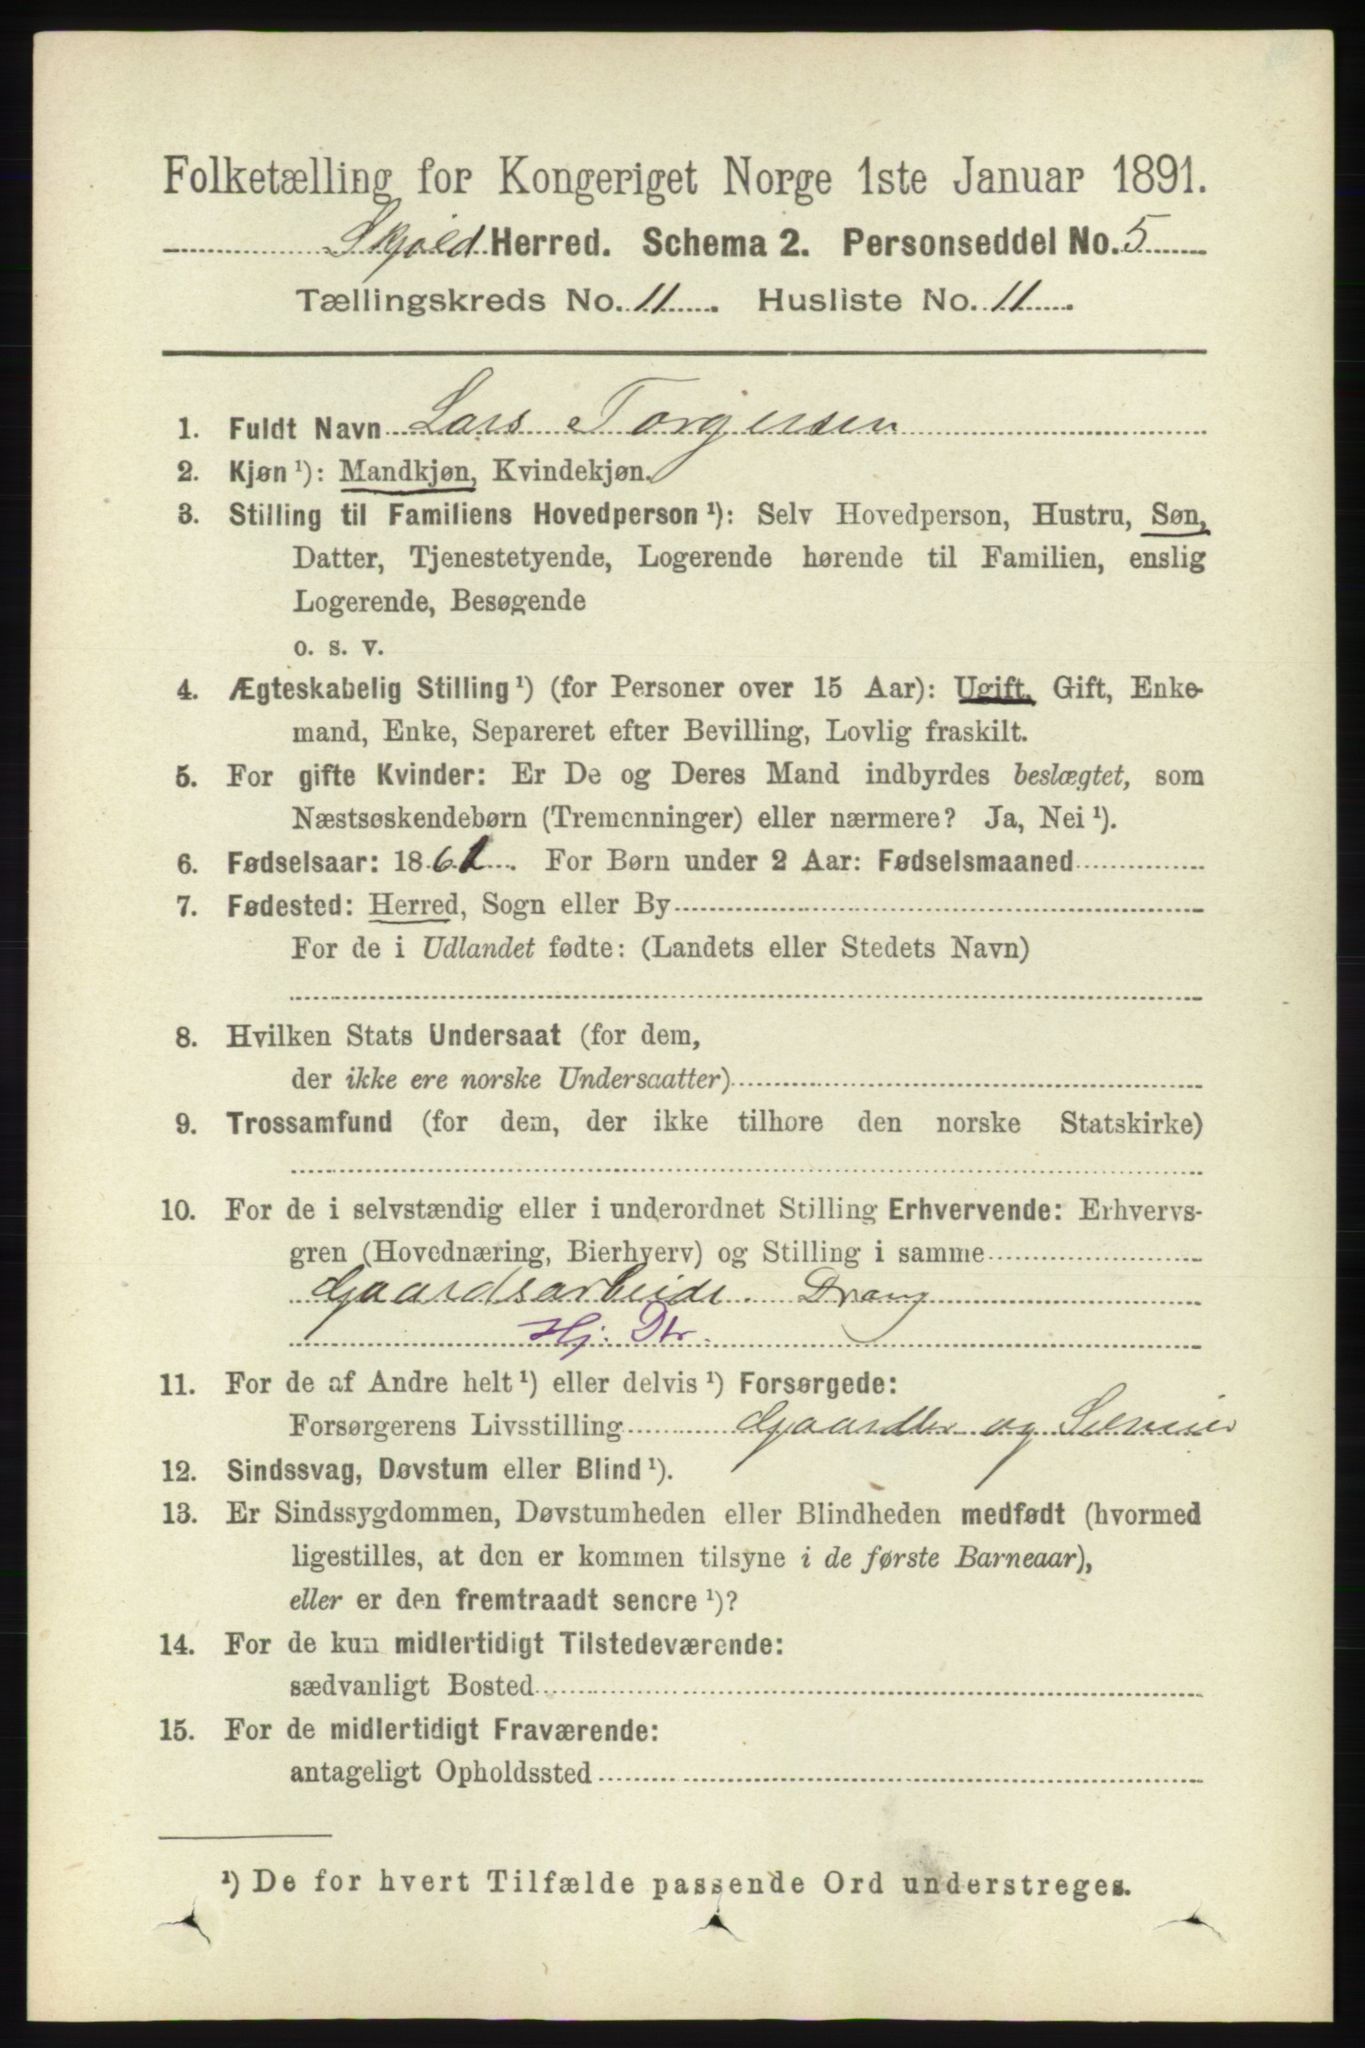 Folketælling for Kongeriget Norge 1ste Januar 1891.
Skjold Herred. Schema 2. Personseddel No. 5
Tællingskreds No. 11. Husliste No. 11.
1. Fuldt Navn Lars Torgersen
2. Kjøn ¹): Mandkjøn, Kvindekjøn.
3. Stilling til Familiens Hovedperson ¹): Selv Hovedperson, Hustru, Søn,
Datter, Tjenestetyende, Logerende hørende til Familien, enslig
Logerende, Besøgende
o. s. v.
4. Ægteskabelig Stilling ¹) (for Personer over 15 Aar): Ugift, Gift, Enke-
mand, Enke, Separeret efter Bevilling, Lovlig fraskilt.
5. For gifte Kvinder: Er De og Deres Mand indbyrdes beslægtet, som
Næstsøskendebørn (Tremenninger) eller nærmere? Ja, Nei ¹).
6. Fødselsaar: 1861. For Børn under 2 Aar: Fødselsmaaned
7. Fødested: Herred, Sogn eller By
For de i Udlandet fødte: (Landets eller Stedets Navn)
8. Hvilken Stats Undersaat (for dem,
der ikke ere norske Undersaatter)
9. Trossamfund (for dem, der ikke tilhøre den norske Statskirke)
10. For de i selvstændig eller i underordnet Stilling Erhvervende: Erhvervs-
gren (Hovednæring, Bierhverv) og Stilling i samme
Gaardsarbeide. Dræng
Hj. Dtr.
11. For de af Andre helt ¹) eller delvis ¹) Forsørgede:
Forsørgerens Livsstilling Gaardbr og
12. Sindssvag, Døvstum eller Blind ¹).
13. Er Sindssygdommen, Døvstumheden eller Blindheden medfødt (hvormed
ligestilles, at den er kommen tilsyne i de første Barneaar),
eller er den fremtraadt senere ¹)?
14. For de kun midlertidigt Tilstedeværende:
sædvanligt Bosted
15. For de midlertidigt Fraværende:
antageligt Opholdssted
¹) De for hvert Tilfælde passende Ord understreges.